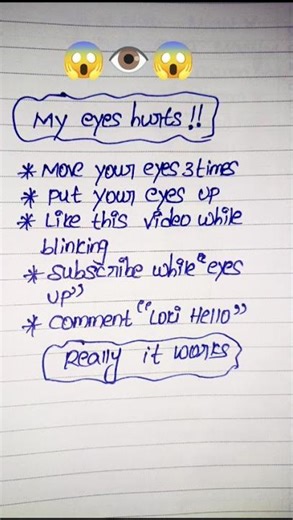 😱👁️😱
My eyes hurts !!
* Move your eyes 3 times
* Put your eyes up
* Like this video while
blinking
* Subscribe while "eyes
up"
* Comment "Lori Hello"
Really it works